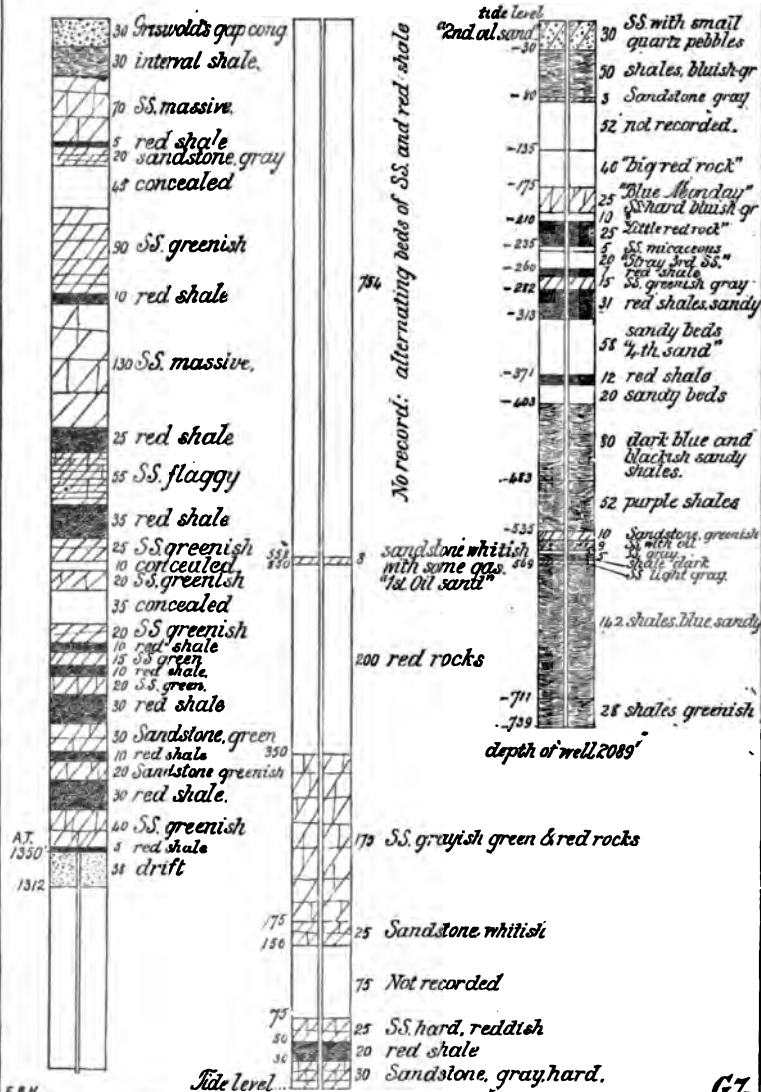 30 Griswold's gap cong
30 interval shale,
70 SS. massive,
5 red shale
20 sandstone, gray
45 concealed
90 SS. greenish
10 red shale
130 SS. massive,
25 red shale
55 SS. flaggy
35 red shale
25 SS. greenish
10 concealed,
20 SS. greenish
35 concealed
20 SS greenish
10 red shale
15 SS green
10 red shale,
20 S.S. green,
30 red shale
30 Sandstone, green
10 red shale
20 Sandstone greenish
30 red shale.
40 SS. greenish
A.T.
1350'
5 red shale
38 drift
1312
754
No record: alternating beds of SS. and red shale
558
550
8 sandstone whitish
with some gas.
"1st Oil sand"
200 red rocks
350
175 SS. grayish green & red rocks
175
25 Sandstone whitish
150
75 Not recorded
75
25 SS. hard, reddish
50
20 red shale
30
30 Sandstone, gray, hard.
Tide level
tide level
"2nd oil sand"
30 SS. with small
quartz pebbles
-30
50 shales, bluish-gr
-80
3 Sandstone gray
52 not recorded.
-135
40 "big red rock"
-175
"Blue Monday"
25 SS hard bluish-gr
-210
10
25 "Little red rock"
-235
5 SS. micaceous
20 "Stray 3rd SS."
-260
7 red shale
15 SS. greenish gray
-282
31 red shales, sandy
-313
58 sandy beds
"4th sand"
-371
12 red shale
20 sandy beds
-403
80 dark blue and
blackish sandy
shales.
-483
52 purple shales
-535
10 Sandstone, greenish
9 SS with oil
5 SS. gray
shale dark
569
SS light gray
142 shales, blue, sandy
-711
28 shales greenish
-739
depth of well 2089'
G7.